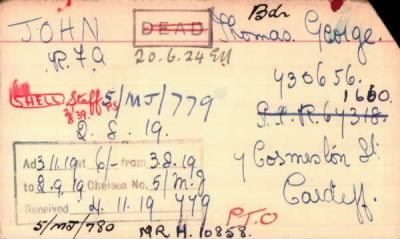 Bdr
JOHN DEAD Thomas George.
R.F.A 20.6.24
430656.
SHELL Staff 5/MJ/779 1660
8.39
2.8.19. 7 Cosmeston St
Ad 3.11.19 at 6/- from 3.8.19 Cardiff.
to 2.9.19 Chelsea No. 5/MJ
Received 4.11.19 779
P.T.O
5/MJ/780 MR H. 10858.